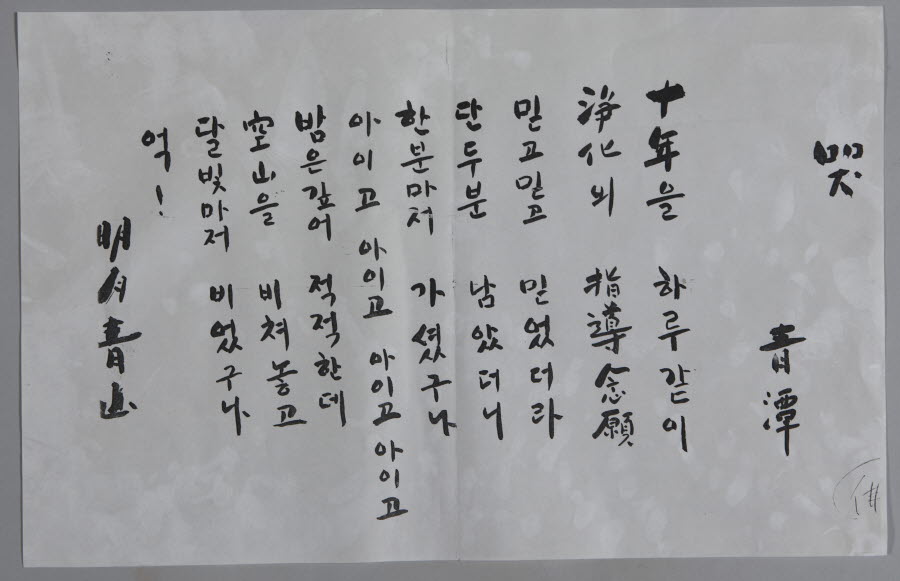 哭
青潭
十年을 하루같이
淨化의 指導念願
믿고믿고 믿었더라
단두분 남았더니
한분마저 가셨구나
아이고 아이고 아이고 아이고
밤은깊어 적적한데
空山을 비쳐놓고
달빛마저 비었구나
억!
明月青山